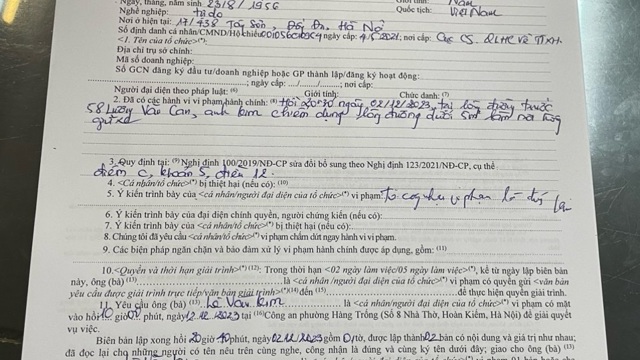 Ngày, tháng, năm sinh 23/8/1956
Nghề nghiệp: tự do Quốc tịch: Việt Nam
Nơi ở hiện tại: 17/438 Tây Sơn, Đống Đa, Hà Nội
Số định danh cá nhân/CMND/Hộ chiếu ngày cấp: nơi cấp: Cục CS. QLHC về TTXH.
<1. Tên của tổ chức>(*):
Địa chỉ trụ sở chính:
Mã số doanh nghiệp:
Số GCN đăng ký đầu tư/doanh nghiệp hoặc GP thành lập/đăng ký hoạt động:
; ngày cấp: .../.../......; nơi cấp:
Người đại diện theo pháp luật: (6) Giới tính: Chức danh: (7)
2. Đã có các hành vi vi phạm hành chính: (8) Hồi 20h30 ngày 02/12/2023, tại lòng đường trước
58 Lương Văn Can, anh Kim chiếm dụng lòng đường dưới 5m2 làm nơi trông
giữ xe
3. Quy định tại: (9) Nghị định 100/2019/NĐ-CP sửa đổi bổ sung theo Nghị định 123/2021/NĐ-CP, cụ thể
điểm c, khoản 5, điều 12.
4. <Cá nhân/tổ chức>(*) bị thiệt hại (nếu có): (10)
5. Ý kiến trình bày của <cá nhân/người đại diện của tổ chức>(*) vi phạm:
6. Ý kiến trình bày của đại diện chính quyền, người chứng kiến (nếu có):
7. Ý kiến trình bày của <cá nhân/tổ chức>(*) bị thiệt hại (nếu có):
8. Chúng tôi đã yêu cầu <cá nhân/tổ chức>(*) vi phạm chấm dứt ngay hành vi vi phạm.
9. Các biện pháp ngăn chặn và bảo đảm xử lý vi phạm hành chính được áp dụng, gồm: (11)
10. <Quyền và thời hạn giải trình>(*) (12): Trong thời hạn <02 ngày làm việc/05 ngày làm việc>(*), kể từ ngày lập biên bản
này, ông (bà) (13) là <cá nhân/người đại diện của tổ chức>(*) vi phạm có quyền gửi <văn bản
yêu cầu được giải trình trực tiếp/văn bản giải trình>(*)(14) đến (15) để thực hiện quyền giải trình.
11. Yêu cầu ông (bà) (13) Lê Văn Kim là <cá nhân/người đại diện của tổ chức>(*) vi phạm có mặt
vào hồi 10 giờ 00 phút, ngày 12/12/2023 tại (16) Công an phường Hàng Trống (Số 8 Nhà Thờ, Hoàn Kiếm, Hà Nội) để giải quyết
vụ việc.
Biên bản lập xong hồi 20 giờ 40 phút, ngày 02/12/2023 gồm 01 tờ, được lập thành 02 bản có nội dung và giá trị như nhau;
đã đọc lại cho những người có tên nêu trên cùng nghe, công nhận là đúng và cùng ký tên dưới đây; giao cho ông (bà) (13)